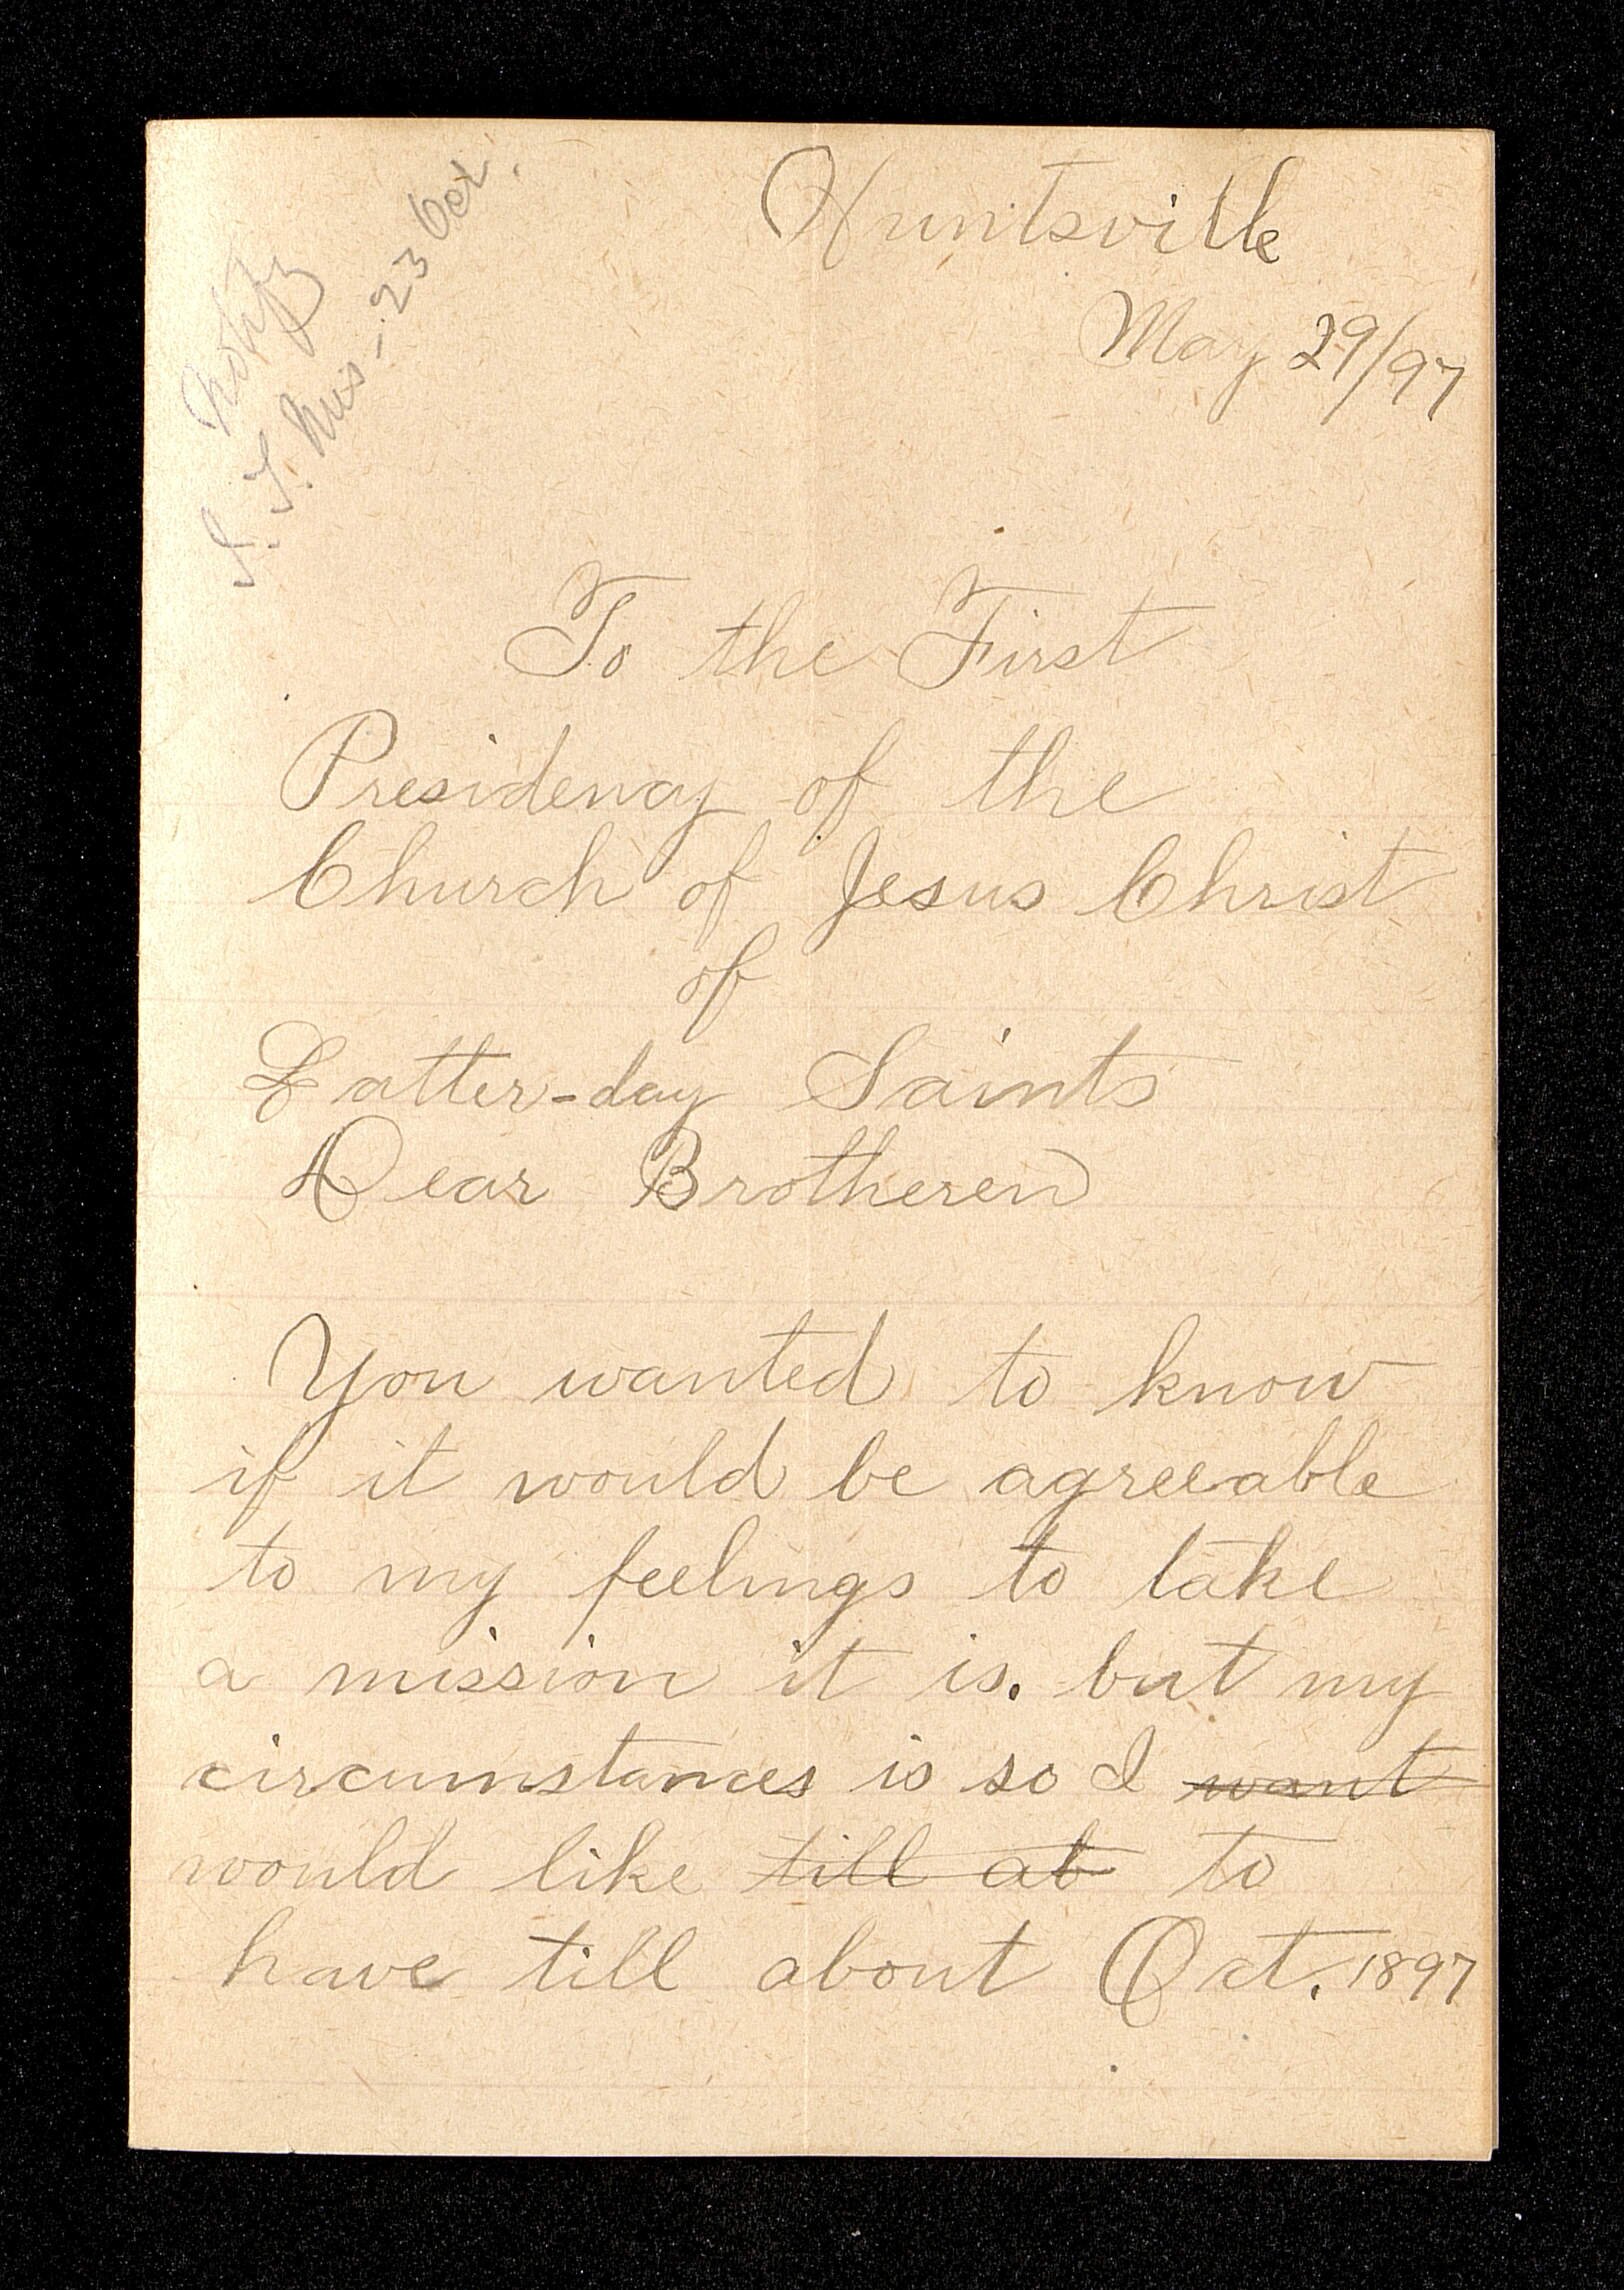 Notify
S. S. Mis - 23 Oct.
Huntsville
May 29/97
To the First
Presidency of the
Church of Jesus Christ
of
Latter-day Saints
Dear Brotheren
You wanted to know
if it would be agreeable
to my feelings to take
a mission it is. but my
circumstances is so I want
would like till ab to
have till about Oct. 1897